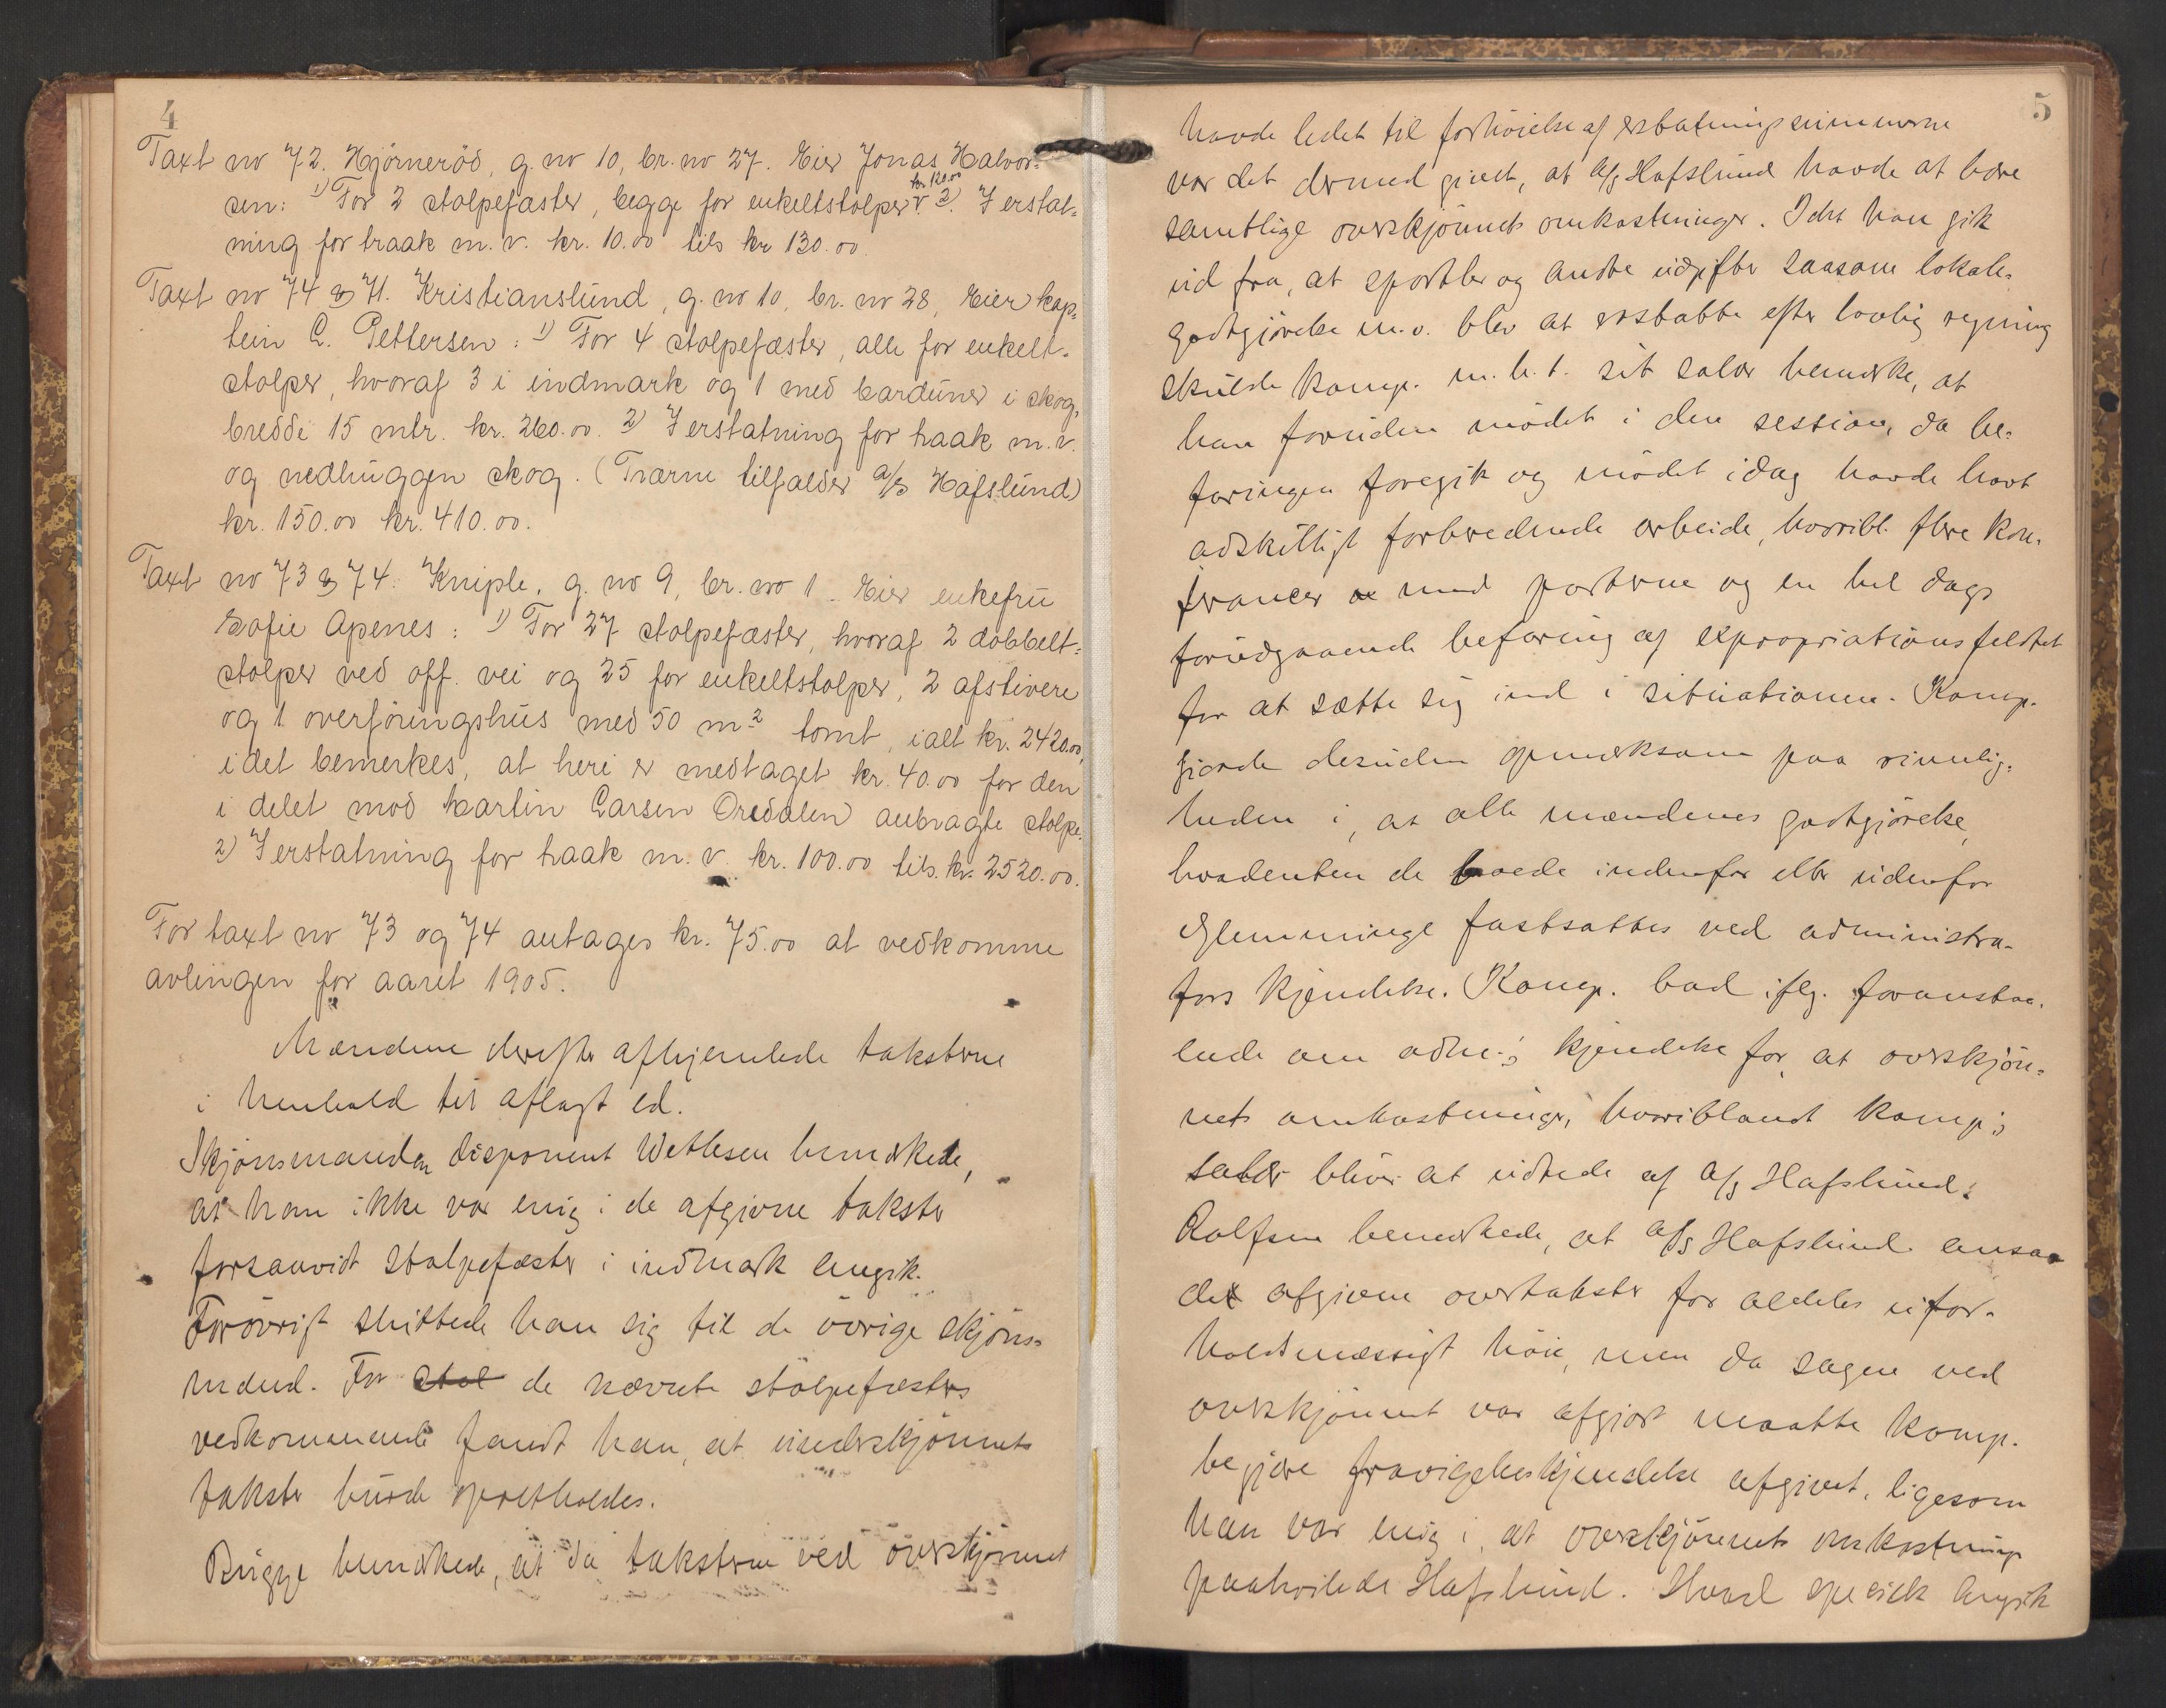 4
Taxt no 72. Hjørnerød, g. no 10, br. no 27. Eier Jonas Halvor-
sen: 1) For 2 stolpefæster, begge for enkeltstolper kr. 120.00 2). I erstat-
ning for hraak m. v. kr. 10.00 tils kr 130.00
Taxt no 74 & 71. Kristianslund, g. no 10, br. no 28, Eier kap-
tein C. Pettersen: 1) For 4 stolpefæster, alle for enkelt-
stolper, hvoraf 3 i indmark og 1 med barduner i skog,
bredde 15 mtr. kr. 260.00. 2) I erstatning for hraak m. v.
og nedhuggen skog. (Trærne tilfalder A/S Hafslund)
kr. 150.00 kr. 410.00.
Taxt no 73 & 74. Kniple, g. no 9, br. no 1. Eier enkefru
Sofie Apenes: 1) For 27 stolpefæster, hvoraf 2 dobbelt-
stolper ved off. vei og 25 for enkeltstolper, 2 afstivere
og 1 overføringshus med 50 m2 tomt, ialt kr. 2420.00,
idet bemerkes, at heri er medtaget kr. 40.00 for den
i delet mod Martin Larsen Oredalen anbragte stolpe.
2) I erstatning for hraak m. v. kr. 100.00 tils. kr. 2520.00.
For taxt no 73 og 74 antages kr. 75.00 at vedkomme
avlingen for aaret 1905.
Mændene derefter afhjemlede taksterne
i henhold til aflagt ed.
Skjønsmanden disponent Wetlesen bemerkede,
at han ikke var enig i de afgivne takster
forsaavidt stolpefæster i indmark angik.
Forøvrigt sluttede han sig til de øvrige skjøns-
mænd. For stol de nævnte stolpefæsters
vedkommende fandt han, at underskjønnets
takster burde opretholdes.
Bugge bemerkede, at da taksterne ved overskjønnet
5
havde ledet til forhøielse af erstatningssummerne
var det dermed givet, at A/S Hafslund havde at bære
samtlige overskjønnets omkostninger. Idet han gik
ud fra, at sportler og andre udgifter saasom lokale-
godtgjørelse m.v. blev at erstatte efter lovlig regning
skulde komp. m. h. t. sit salær bemerke, at
han foruden mødet i den session, da be-
faringen foregik og mødet idag havde havt
adskilligt forberedende arbeide, hvoribl. flere kon-
ferancer med parterne og en hel dags
forudgaaende befaring af expropriationsfeltet
for at sætte sig ind i situationen. Komp.
gjorde desuden opmerksom paa rimelig-
heden i, at alle mændenes godtgjørelse,
hvadenten de boede indenfor eller udenfor
Glemminge fastsattes ved administra-
tors kjendelse. Komp. bad iflg. foranstaa-
ende om adm.s kjendelse for, at overskjøn-
nets omkostninger, hvoriblandt komp.s
salær bliver at udrede af A/S Hafslund.
Rolfsen bemerkede, at A/S Hafslund ansaa
de afgivne overtakster for aldeles ufor-
holdsmæssigt høie, men da sagen ved
overskjønnet var afgjort maatte komp.
begjære fravigelseskjendelse afgivet, ligesom
han var enig i, at overskjønnets omkostninger
paahvilede Hafslund. Hvad specielt angik